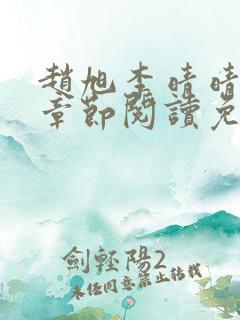 趙旭李晴晴
章節閱讀免
劍輊陽2
未經同意禁止轉載